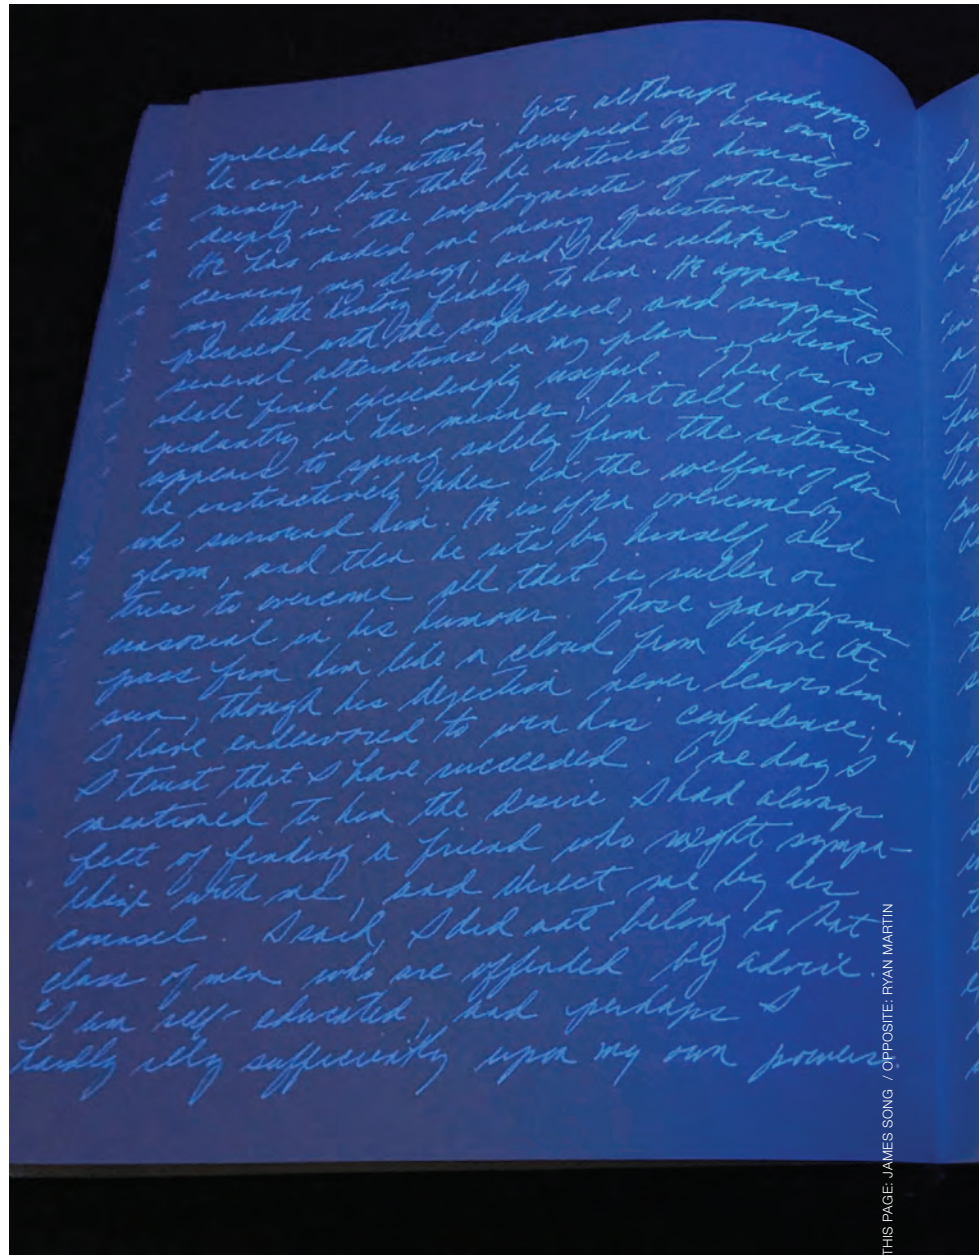 preceeded his own. Yet, although unhappy,
he is not so utterly occupied by his own
misery, but that he interests himself
deeply in the employments of others.
He has asked me many questions con-
cerning my design; and I have related
my little history frankly to him. He appeared
pleased with the confidence, and suggested
several alterations in my plan, which I
shall find exceedingly useful. There is no
pedantry in his manner; but all he does
appears to spring solely from the interest
he instinctively takes in the welfare of
who surround him. He is often overcome by
gloom, and then he sits by himself, and
tries to overcome all that is sullen or
unsocial in his humour. Those paroxysms
pass from him like a cloud from before the
sun, though his dejection never leaves him.
I have endeavored to win his confidence; and
I trust that I have succeeded. One day I
mentioned to him the desire I had always
felt of finding a friend who might sympa-
thize with me, and direct me by his
counsel. I said, I did not belong to that
class of men who are offended by advice.
"I am self-educated, and perhaps I
hardly rely sufficiently upon my own powers.
THIS PAGE: JAMES SONG / OPPOSITE: RYAN MARTIN